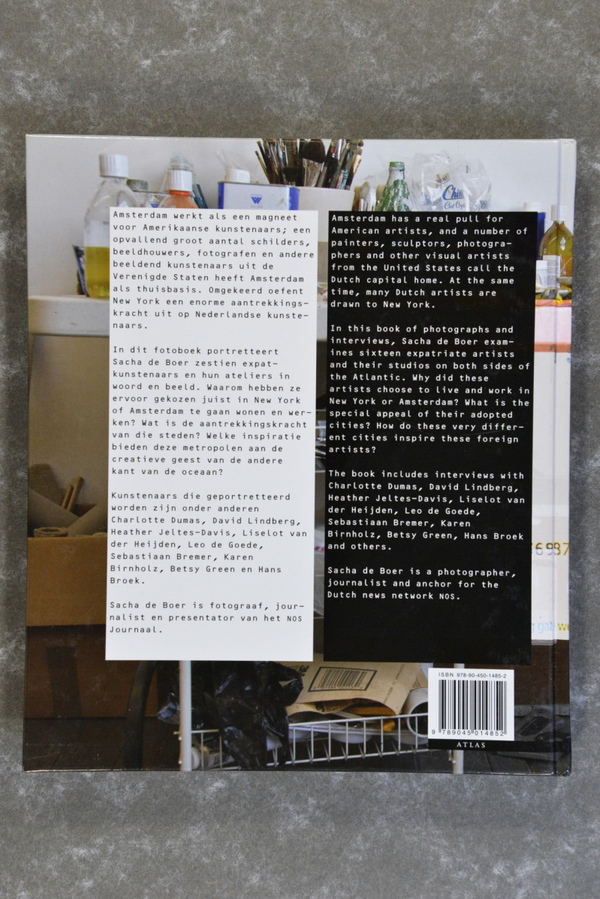 Amsterdam werkt als een magneet
voor Amerikaanse kunstenaars; een
opvallend groot aantal schilders,
beeldhouwers, fotografen en andere
beeldend kunstenaars uit de
Verenigde Staten heeft Amsterdam
als thuisbasis. Omgekeerd oefent
New York een enorme aantrekkings-
kracht uit op Nederlandse kunste-
naars.
In dit fotoboek portretteert
Sacha de Boer zestien expat-
kunstenaars en hun ateliers in
woord en beeld. Waarom hebben ze
ervoor gekozen juist in New York
of Amsterdam te gaan wonen en wer-
ken? Wat is de aantrekkingskracht
van die steden? Welke inspiratie
bieden deze metropolen aan de
creatieve geest van de andere
kant van de oceaan?
Kunstenaars die geportretteerd
worden zijn onder anderen
Charlotte Dumas, David Lindberg,
Heather Jeltes-Davis, Liselot van
der Heijden, Leo de Goede,
Sebastiaan Bremer, Karen
Birnholz, Betsy Green en Hans
Broek.
Sacha de Boer is fotograaf, jour-
nalist en presentator van het NOS
Journaal.
Amsterdam has a real pull for
American artists, and a number of
painters, sculptors, photogra-
phers and other visual artists
from the United States call the
Dutch capital home. At the same
time, many Dutch artists are
drawn to New York.
In this book of photographs and
interviews, Sacha de Boer exam-
ines sixteen expatriate artists
and their studios on both sides of
the Atlantic. Why did these
artists choose to live and work in
New York or Amsterdam? What is the
special appeal of their adopted
cities? How do these very differ-
ent cities inspire these foreign
artists?
The book includes interviews with
Charlotte Dumas, David Lindberg,
Heather Jeltes-Davis, Liselot van
der Heijden, Leo de Goede,
Sebastiaan Bremer, Karen
Birnholz, Betsy Green, Hans Broek
and others.
Sacha de Boer is a photographer,
journalist and anchor for the
Dutch news network NOS.
ISBN 978-90-450-1485-2
9 789045 014852
ATLAS